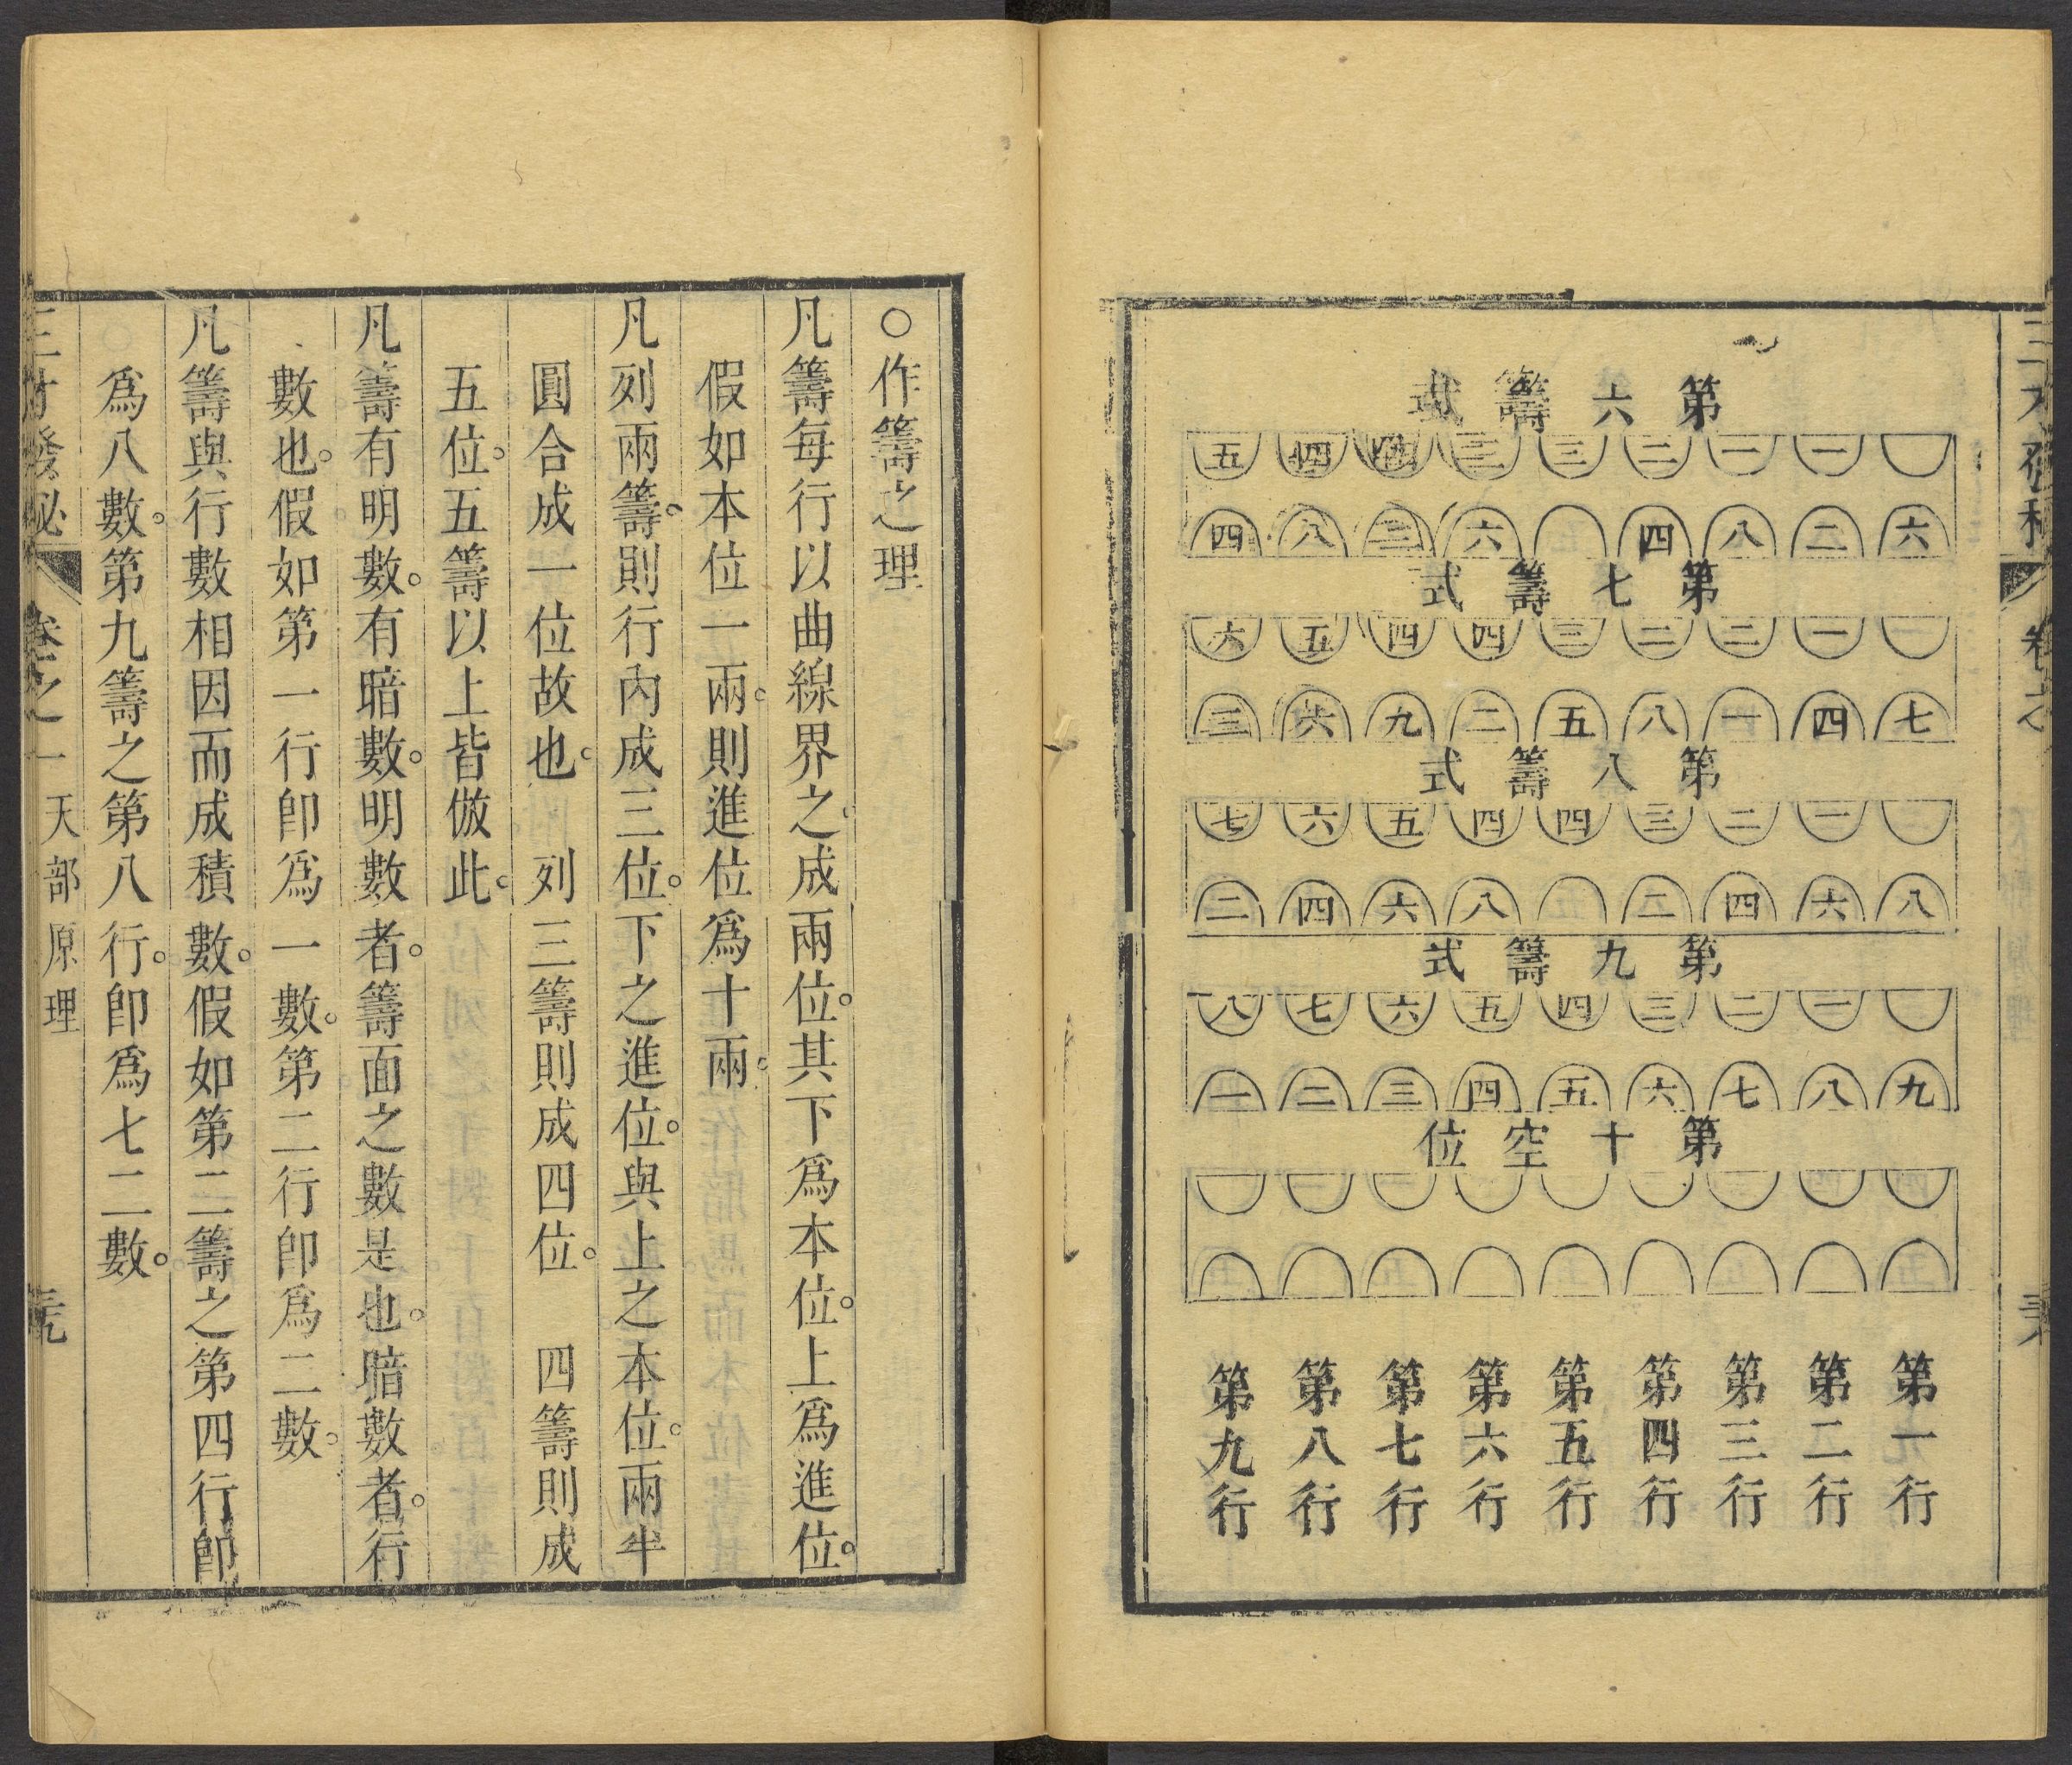 三才發秘 卷之 三八
第六籌式
一一二三三四四五
六二八四六二八四
第七籌式
一二二三四四五六
七四一八五二九六三
第八籌式
一二三四四五六七
八六四二八六四二
第九籌式
一二三四五六七八
九八七六五四三二一
第十空位
第一行
第二行
第三行
第四行
第五行
第六行
第七行
第八行
第九行
○作籌之理
凡籌每行以曲線界之成兩位。其下爲本位。上爲進位。
假如本位一兩。則進位爲十兩。
凡列兩籌。則行內成三位。下之進位。與上之本位。兩半
圓合成一位故也。 列三籌則成四位。 四籌則成
五位。五籌以上皆倣此。
凡籌有明數。有暗數。明數者。籌面之數是也。暗數者。行
數也。假如第一行卽爲一數。第二行卽爲二數。
凡籌與行數相因而成積數。假如第二籌之第四行卽
爲八數。第九籌之第八行。卽爲七二數。
三才發秘 卷之一 天部原理 三九